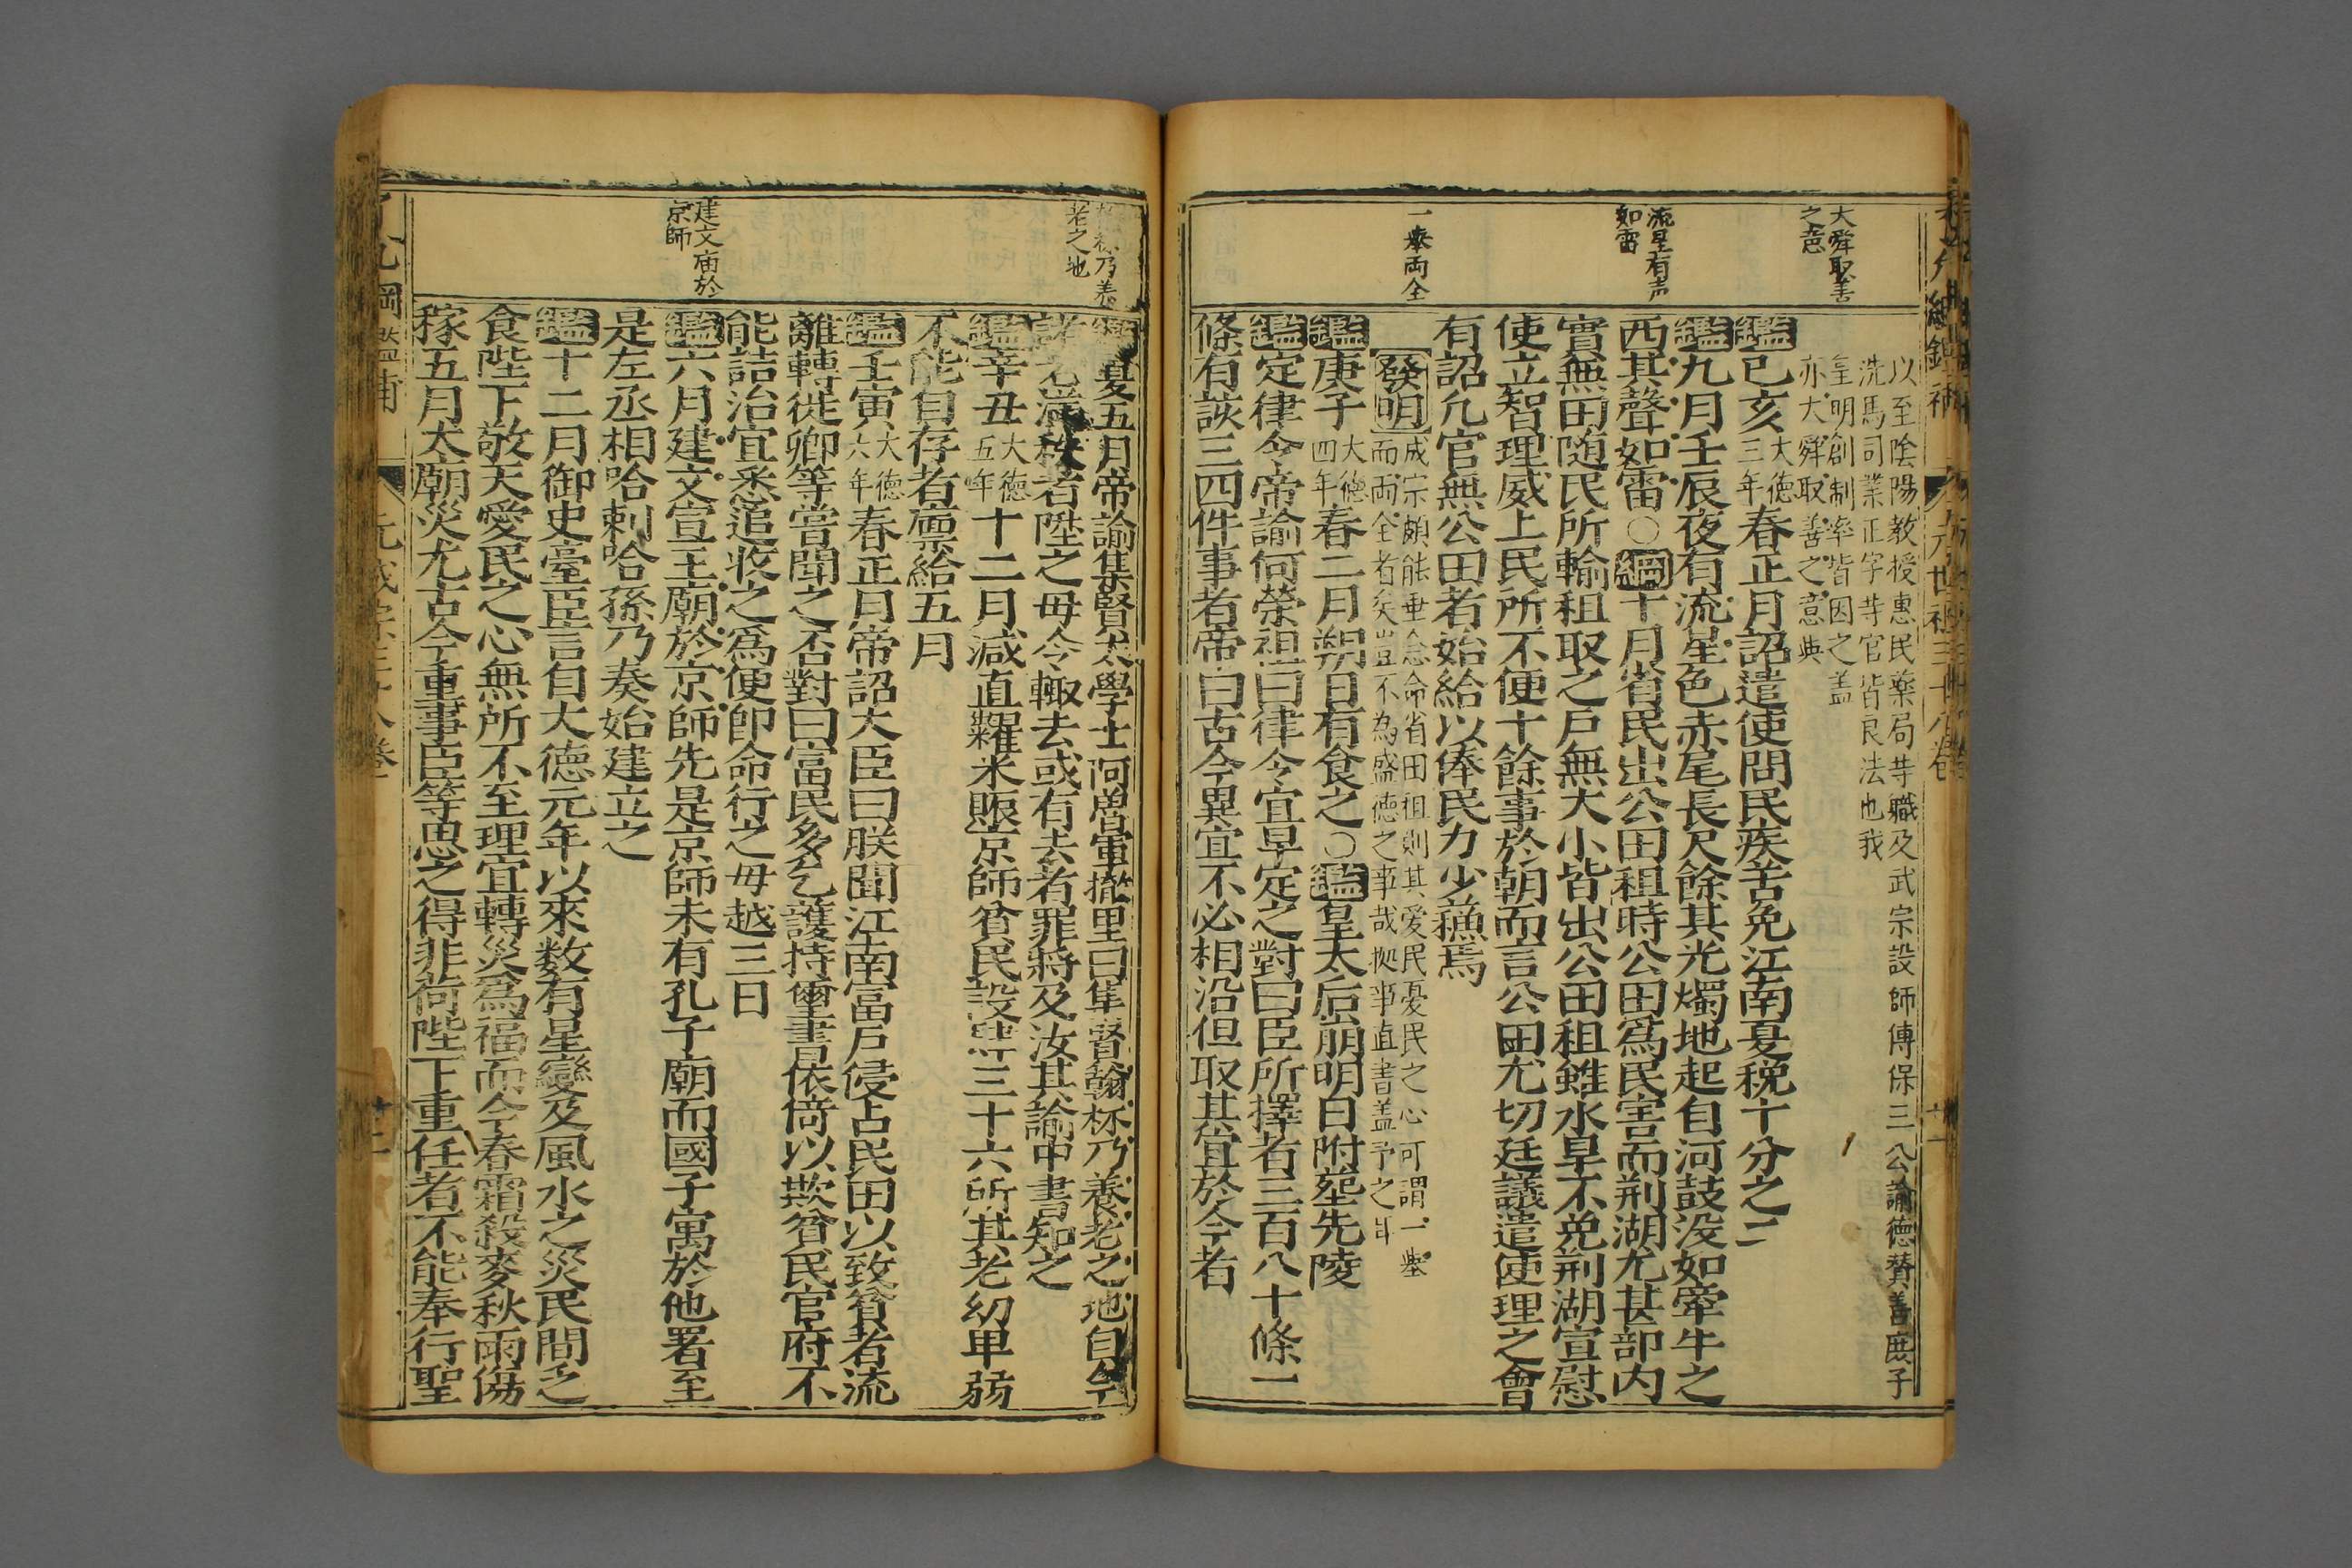 大舜取善
之意
流星有声
如雷
一舉両全
以至陰陽教授惠民藥局䓁職及武宗設師傅保三公諭德賛善庻子
洗馬司業正字䓁官皆良法也我
皇明創制率皆因之盖
亦大舜取善之意與
鑑已亥大德三年春正月詔遣使問民疾苦免江南夏稅十分之二
鑑九月壬辰夜有流星色赤尾長尺餘其光燭地起自河鼓没如牽牛之
西其聲如雷○綱十月省民出公田租時公田爲民害而荆湖尤甚部内
實無田随民所輸租取之戶無大小皆出公田租雖水旱不免荆湖宣慰
使立智理威上民所不便十餘事於朝而言公田尤切廷議遣使理之會
有詔凢官無公田者始給以俸民力少蘓焉
發明成宗頗能垂念命省田租則其愛民憂民之心可謂一舉
而両全者矣豈不為盛德之事哉拠事直書盖予之耳
鑑庚子大德四年春二月朔日有食之○鑑皇太后崩明日附塟先陵
鑑定律令帝諭何榮祖曰律令宜早定之對曰臣所擇者三百八十條一
條有該三四件事者帝曰古今異宜不必相沿但取其宜於今者
乃養
老之地
建文庙於
京師
鑑夏五月帝諭集賢大學士阿魯軍撤里曰集賢翰林乃養老之地自今
諸老滿秩者陞之毋令輙去或有去者罪將及汝其諭中書知之
鑑辛丑大德五年十二月減直糶米賑京師貧民設肆三十六所其老幼单弱
不能自存者廪給五月
鑑壬寅大德六年春正月帝詔大臣曰朕聞江南富戶侵占民田以致貧者流
離轉徙卿等嘗聞之否對曰富民多乞護持璽書依倚以欺貧民官府不
能詰治宜悉追收之爲便即命行之毋越三日
鑑六月建文宣王廟於京師先是京師未有孔子廟而國子寓於他署至
是左丞相哈剌哈孫乃奏始建立之
鑑十二月御史臺臣言自大德元年以來数有星變及風水之災民間乏
食陛下敬天愛民之心無所不至理宜轉災爲福而今春霜殺麥秋雨傷
稼五月太廟災尤古今重事臣等思之得非荷陛下重任者不能奉行聖